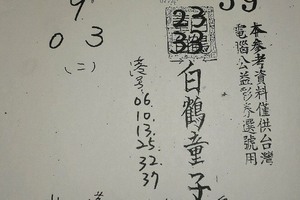 39
本参考資料僅供台灣
電腦公益彩券選號用
23
38
白鶴童子
9
0 3
(二)
06.
10.
13.
25.
32.
37